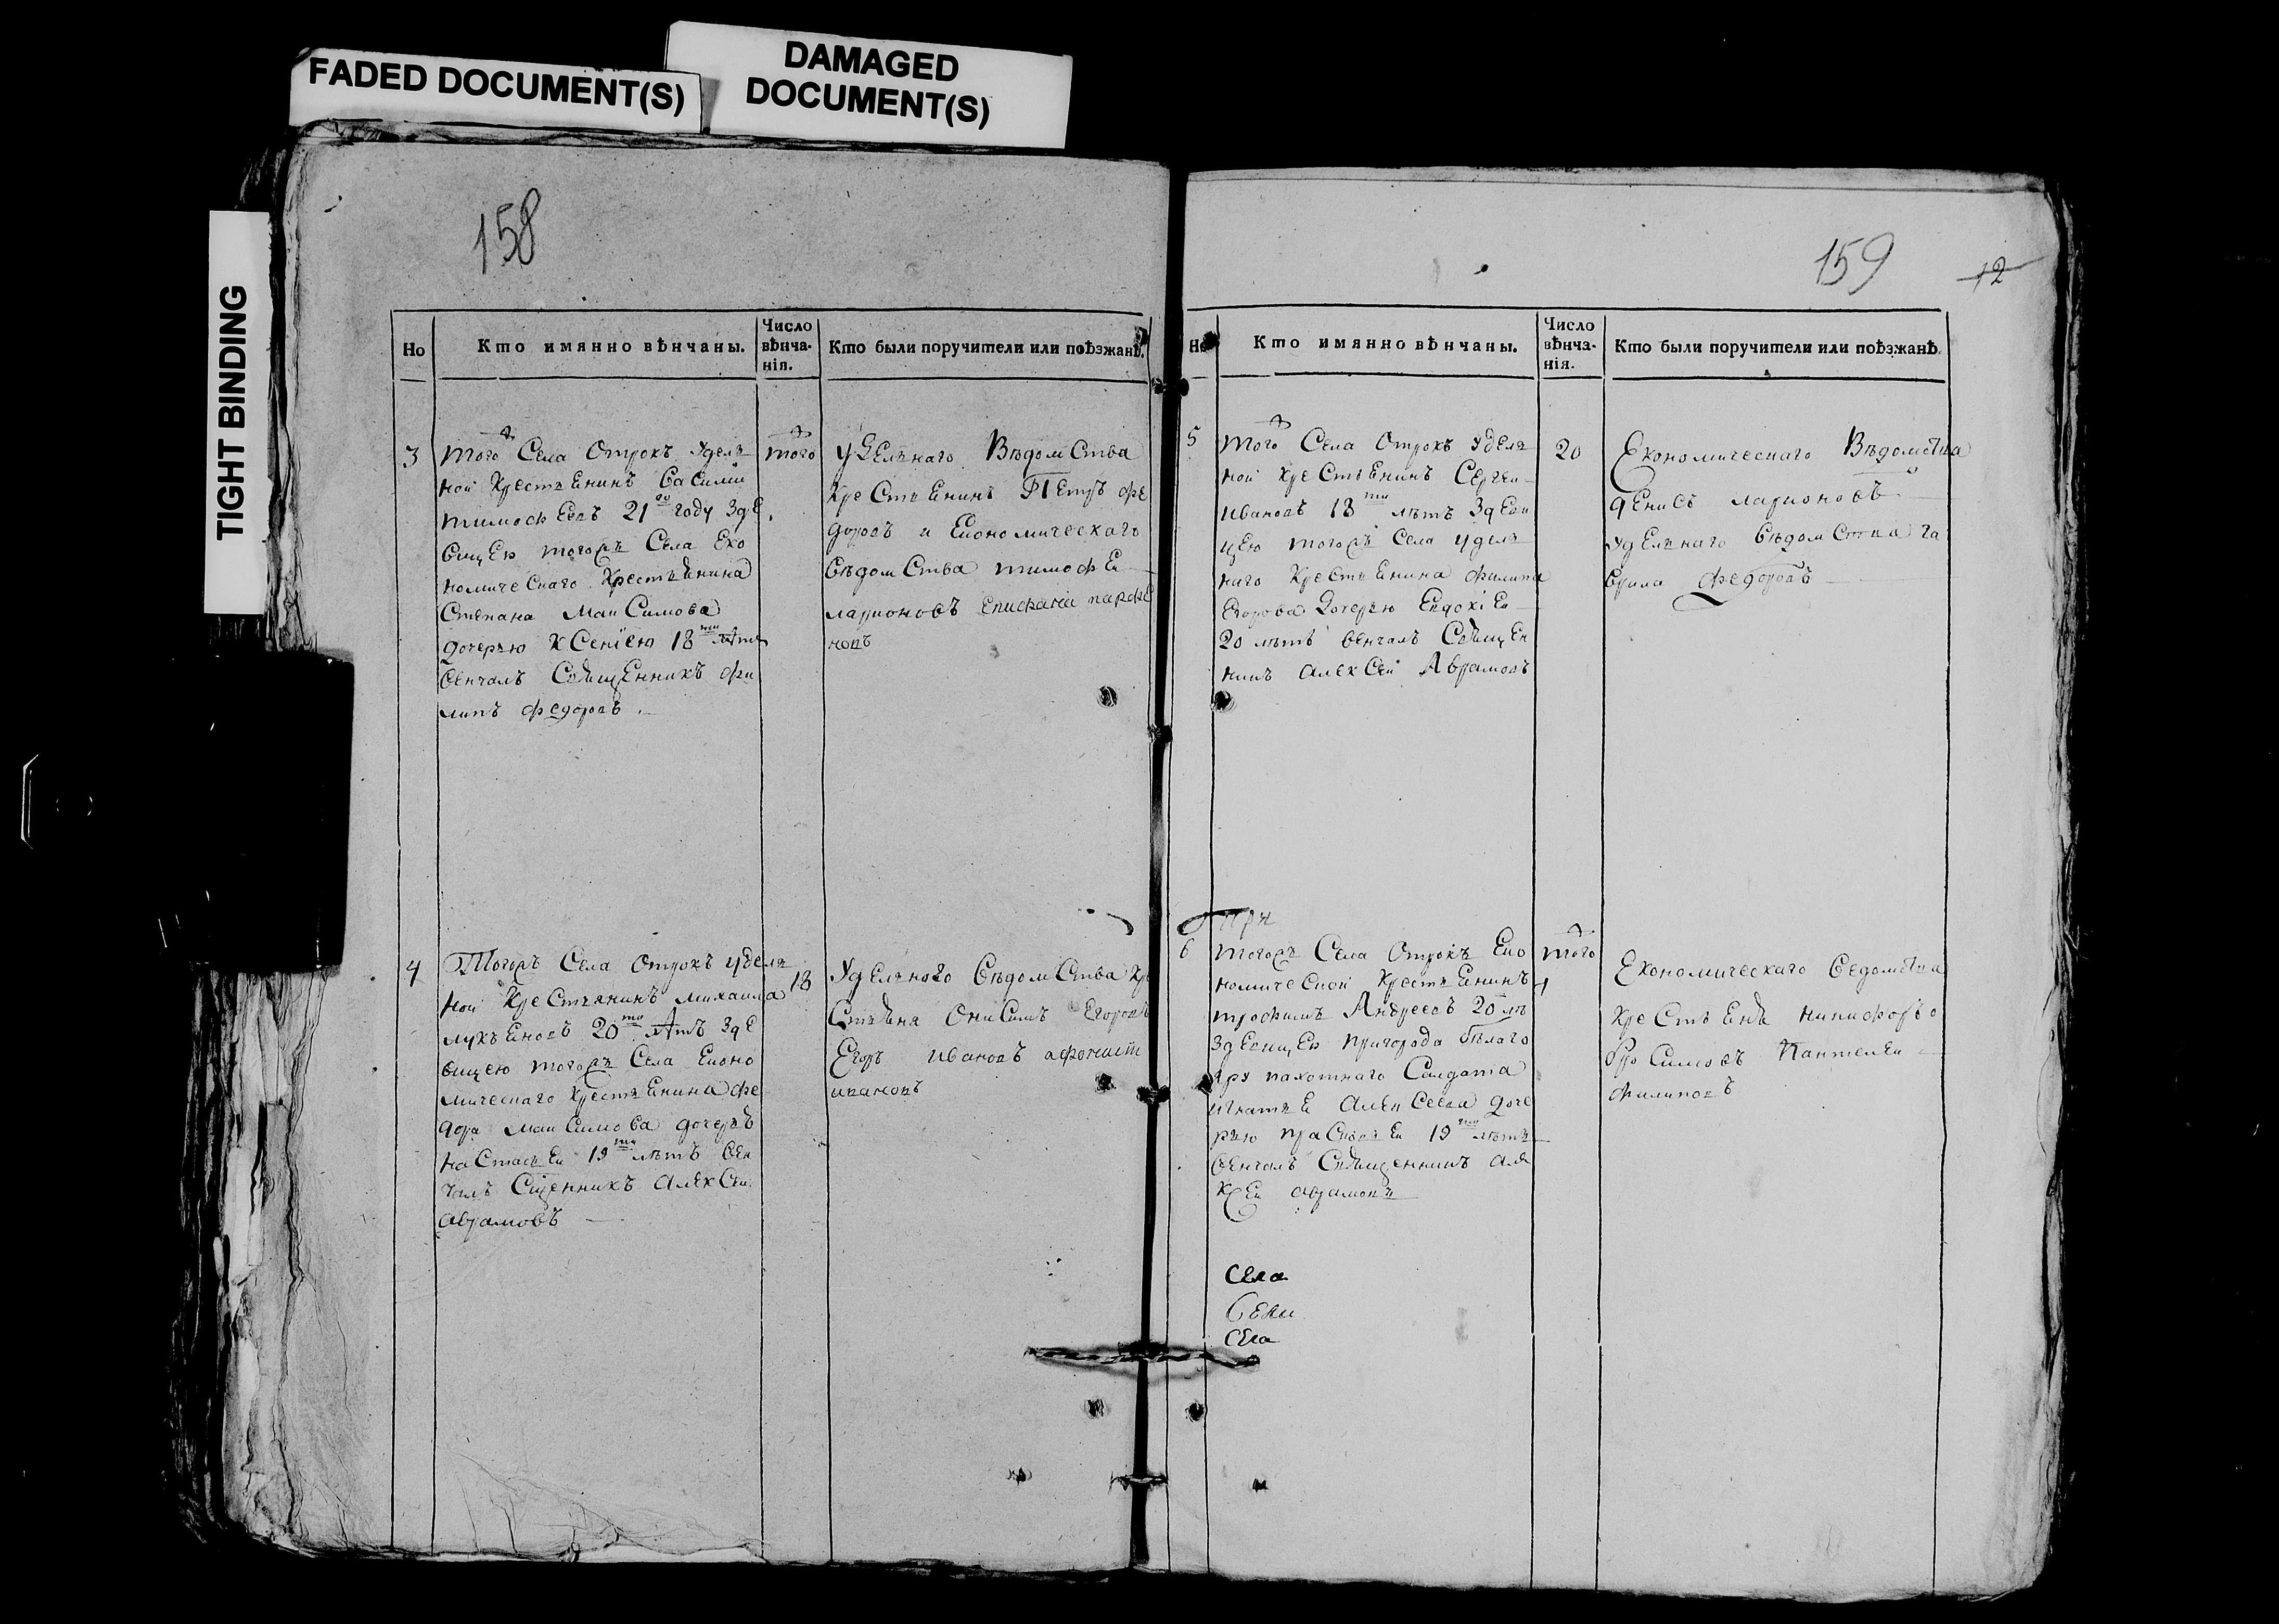 FADED DOCUMENT(S)
DAMAGED
DOCUMENT(S)
TIGHT BINDING
158
Но
Кто имянно вѣнчаны.
Число
вѣнча-
нія.
Кто были поручители или поѣзжанѣ.
3
того Села Отрокъ Удель
ной Крестьенинъ Василии
тимофеевъ 21 го году здѣ
вищею тогожъ Села Еко
номическаго Крестьенина
Степана Максимова
дочерью Ксениею 18 ти лѣтъ
венчалъ Священникъ фи
липъ федоровъ
того
удельнаго Вѣдомства
крестьенинъ Петръ фе
доровъ и Економическаго
вѣдомства тимофеи
ларионовъ парфе
новъ
4
Тогожъ Села Отрокъ удель
ной Крестьянинъ михаила
лукьеновъ 20 ти лѣтъ здѣ
вищею тогожъ Села Еконо
мическаго Крестьенина фе
дора максимова дочерью
настасьеи 19 ти лѣтъ вен
чалъ Сщенникъ алексеи
аврамовъ
18
Удельного вѣдомства кре
стьяня Онисимъ Егоровъ
Егоръ ивановъ
ивановъ
159
12
Но
Кто имянно вѣнчаны.
Число
вѣнча-
нія.
Кто были поручители или поѣзжанѣ.
5
того Села Отрокъ удель
ной крестьенинъ Сергеи
ивановъ 18 ти лѣтъ здеви
щею тогожъ Села удель
наго крестьенина филипа
Егорова дочерью Евдокиеи
20 лѣтъ венчалъ Священ
никъ алексеи Аврамовъ
20
Економическаго Вѣдомства
денисъ ларионовъ
удельнаго вѣдомства га
врила федоровъ
6
тогожъ Села Отрокъ Еко
номическои Крестьенинъ
трофимъ Андреевъ 20 лѣ
здевищеи пригорода бѣлаго
яру пахотнаго Салдата
игнатьеи алексеева доче
рью прасковьеи 19 ти лѣтъ
венчалъ Священникъ але
ксеи аврамовъ
того
Економическаго ведомства
крестьенѣ никифоръ
Пантелеи
филиповъ
Села
Села